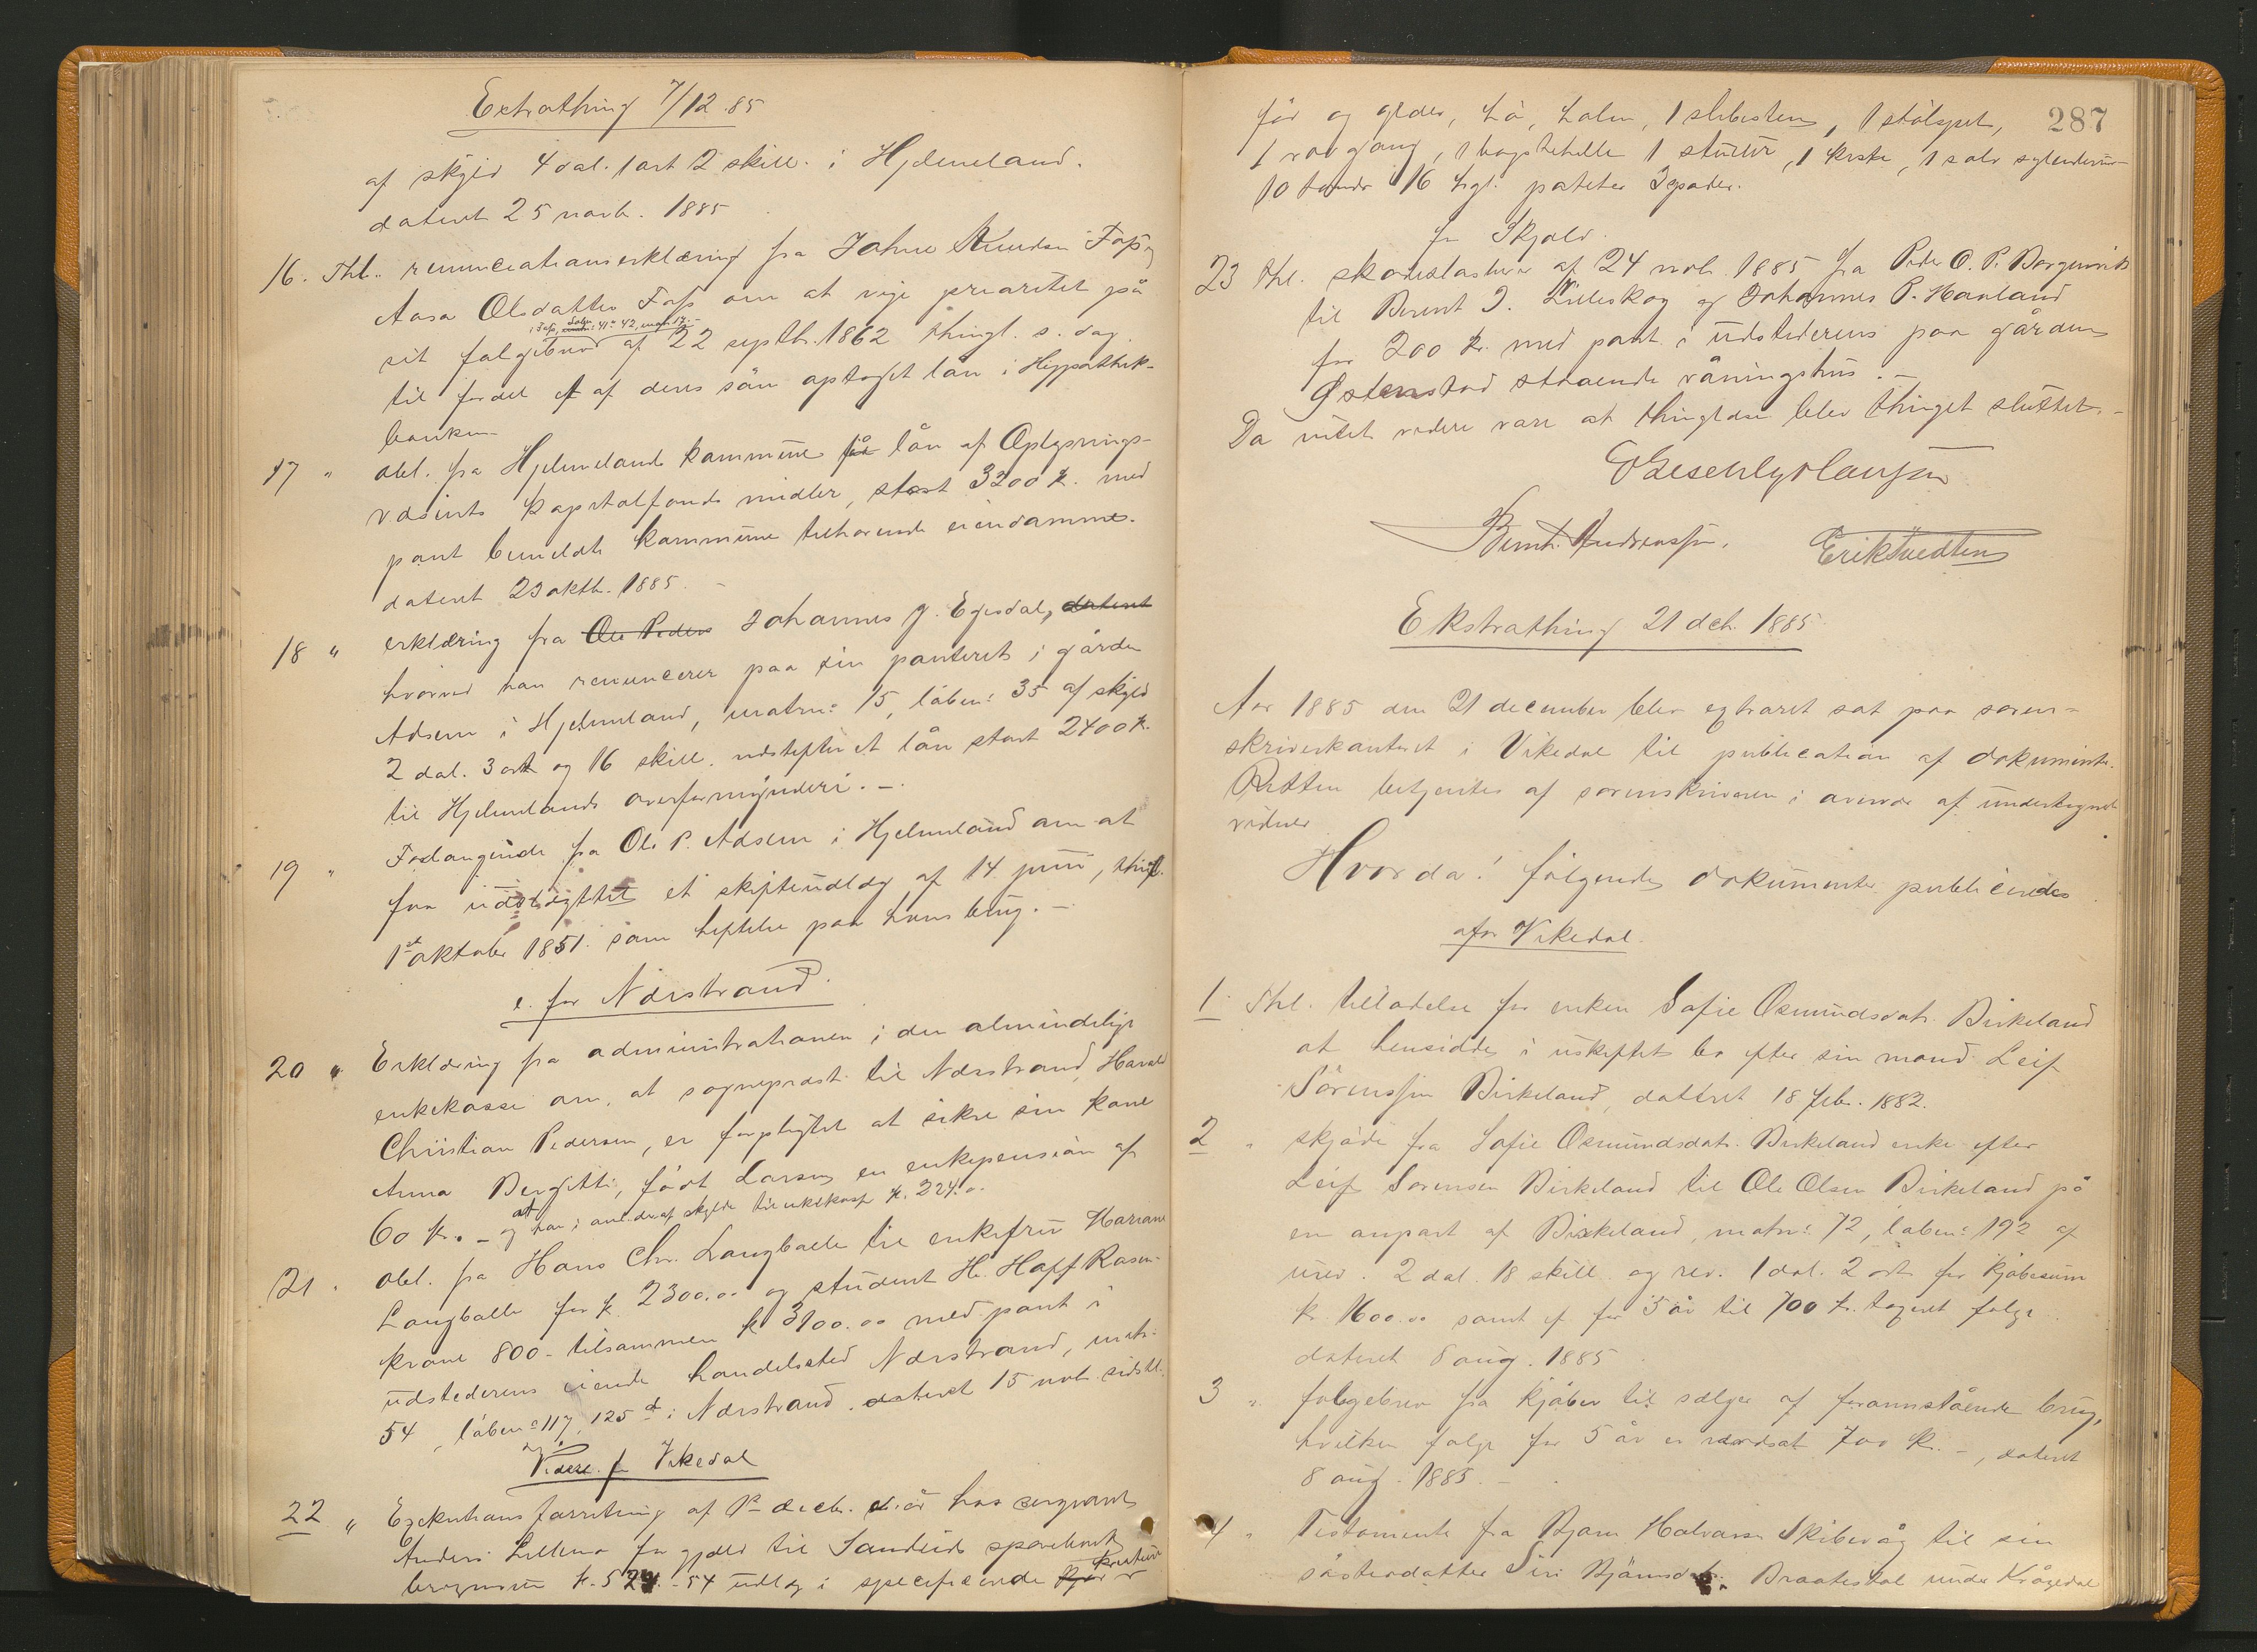 Extrathing 7/12.85
af skyld 4 dal. 1 ort 2 skill. i Hjelmeland.
dateret 25 novb. 1885
16. Thl. renunciationserklæring fra Johne Knudsen Fas og
Aasa Olsdatter Fass om at vige prioritet på
i Fass, Solv. 41 42, matr. 17.-
sit folgebrev af 22 septb. 1862 thingl. s. dag
til fordel af deres sön optaget lån i Hypothek-
banken
17 " obl. fra Hjelmelands kommune for lån af Oplysnings-
væsents kapitalfonds midler, stort 3200 k. med
pant bemeldte kommune tilhorende eiendomme.
dateret 23 oktb. 1885. -
18 " erklæring fra Ole Peders Johannes J. Egesdal, dateret
hvorved han renuncerer paa sin panteret i gården
Adsen i Hjelmeland, matrn: 15, löben: 35 af skyld
2 dal. 3 ort og 16 skill. et lån stort 2400 k.
til Hjelmelands overformynderi. -
19 " Forlangende fra Ole P. Adsen i Hjelmeland om at
faa udslettet et skifteudlæg af 14 juni, thingl.
1ste oktober 1851 som heftelse paa hans brug. -
e. for Nærstrand.
20 " Erklæring fra administrationen i den almindelige
enkekasse om, at sogneprest til Nærstrand, Harald
Christian Pedersen, er forpligtet at sikre sin kone
Anna Bergitte, födt Larsen en enkepension af
60 kr. - og at han i anl. deraf skylder til enkekassen k. 224.00
21 . obl. fra Hans Chr. Langballe til enkefru Mariane
Langballe for k. 2300.00 og student H. Hoff Rasm-
krone 800 - tilsammen k 3100.00 med pant i
udstederens eiende handelssted Nærstrand, matr.
54, löben: 117, 125 d i Nærstrand. dateret 15 novb. sidstl.
Videre f. Vikedal
22 " Exekutionsforretning af 1ste decb. d. år hos sergeant
Anders Lillemo for gjæld til Sandeids sparebank
k. 524.-54 udlæg i specificerede kreature
287
får og gjeder, hö, halm, 1 slibesten, 1 stålspet,
1 vævgang, 1 bagstehelle 1 stutur, 1 kiste, 1 sölv sylenderur
10 tönder 16 hgl. poteter 3 spader.
fr Skjold.
23 thl. skadeslösbrev af 24 novb. 1885 fra Peder O. P. Borgenvik
til Berent I. Lilleskog og Johannes P. Hauland
for 200 kr. med pant i udstederens paa gården
Östenstad staaende våningshus. -
Da intet videre var at thinglæse blev thinget sluttet. -
Bernt Andreassen. Erik Tvedten
Ekstrathing 21 dcb. 1885
Aar 1885 den 21 december blev extraret sat paa soren-
skriverkontoret i Vikedal til publication af dokumenter.
Retten betjentes af sorenskriveren i overvær af undertegnede
vidner
Hvorda! følgende dokumenter publiceredes
a for Vikedal.
1. Thl. tilladelse for enken Sofie Osmundsdatr. Birkeland
at hensidde i uskiftet bo efter sin mand Leif
Sörenssen Birkeland, dateret 18 febr. 1882.
2 " skjöde fra Sofie Osmundsdatr. Birkeland enke efter
Leif Sorensen Birkeland til Ole Olsen Birkeland på
en anpart af Birkeland, matrn: 72, löben: 192 af
urev. 2 dal. 18 skill. og rev. 1 dal. 2 ort for kjöbesum
k. 1600.00 samt et for 5 år til 700 k. taxeret folge.
dateret 8 aug. 1885
3 " folgebrev fra kjöber til sælger af foranstående brug,
hvilken folge for 5 år er værdsat 700 kr. -, dateret
8 aug. 1885. -
4 " Testamente fra Bjarn Halvorsen Skibevåg til sin
söster datter Siri Bjarnsdtr. Braatestøl under Krågedal